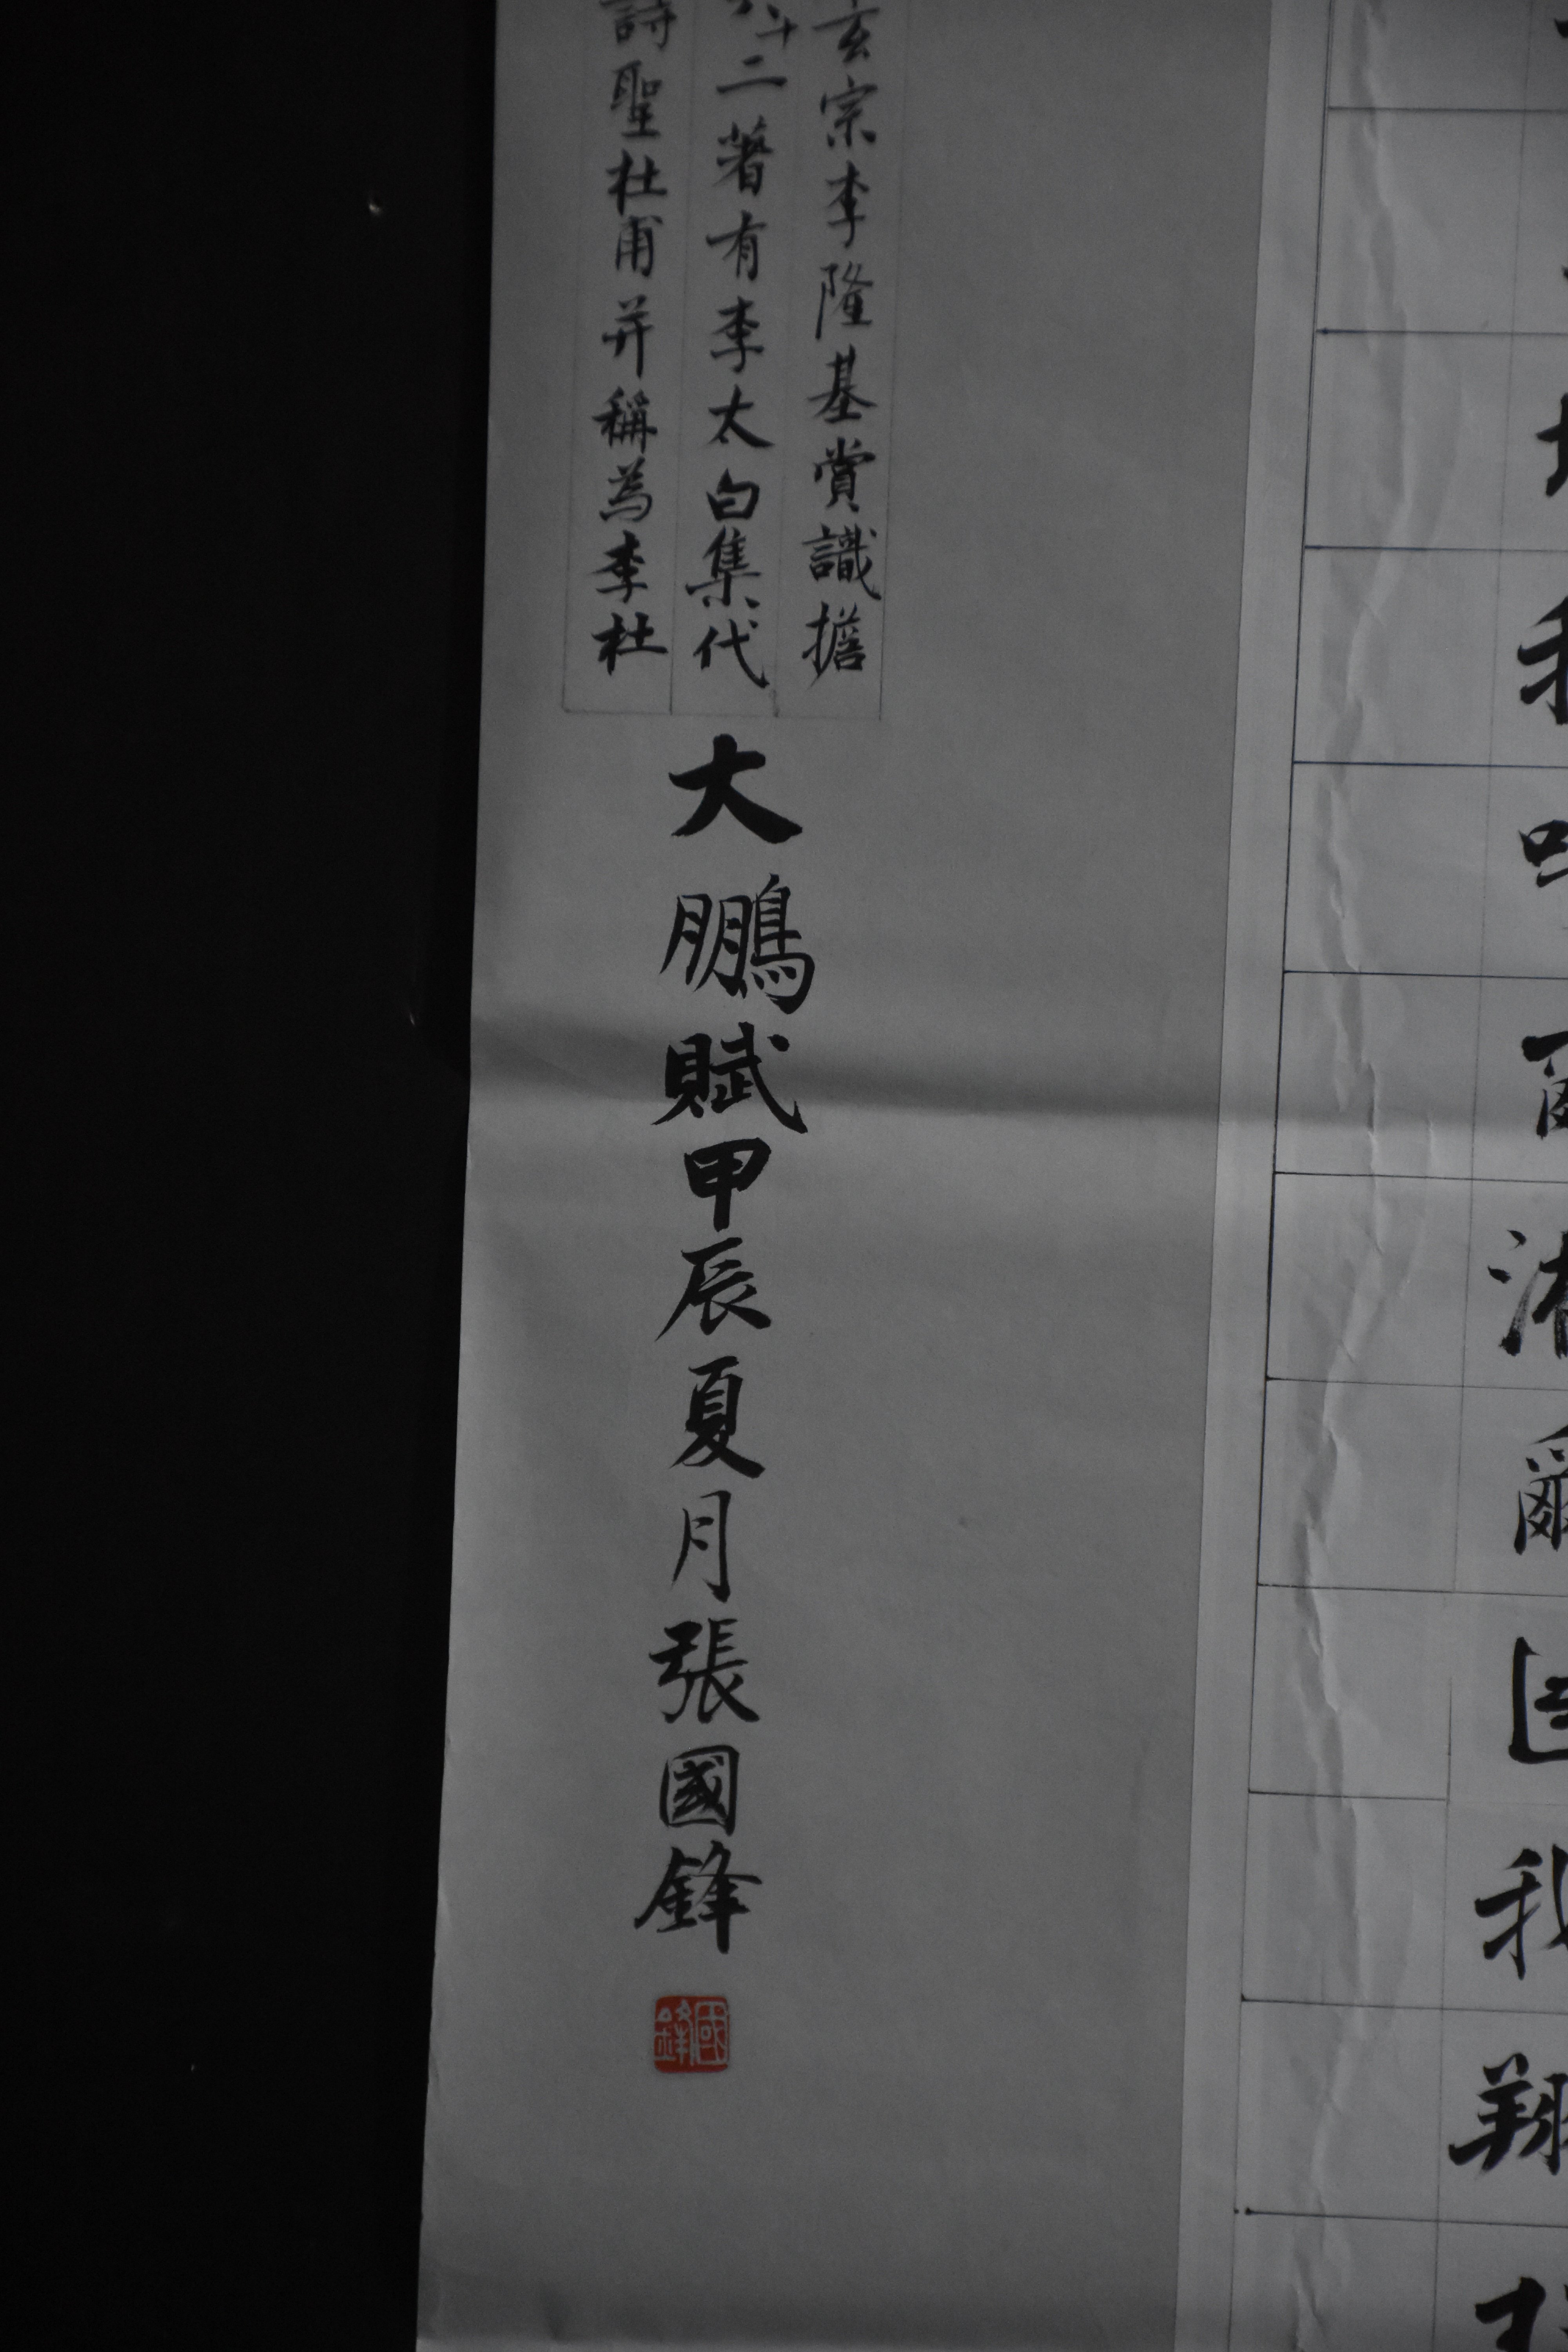 我
翔
玄宗李隆基賞識擔
六十二著有李太白集代
詩聖杜甫并稱為李杜
大鵬賦甲辰夏月張國鋒
國鋒